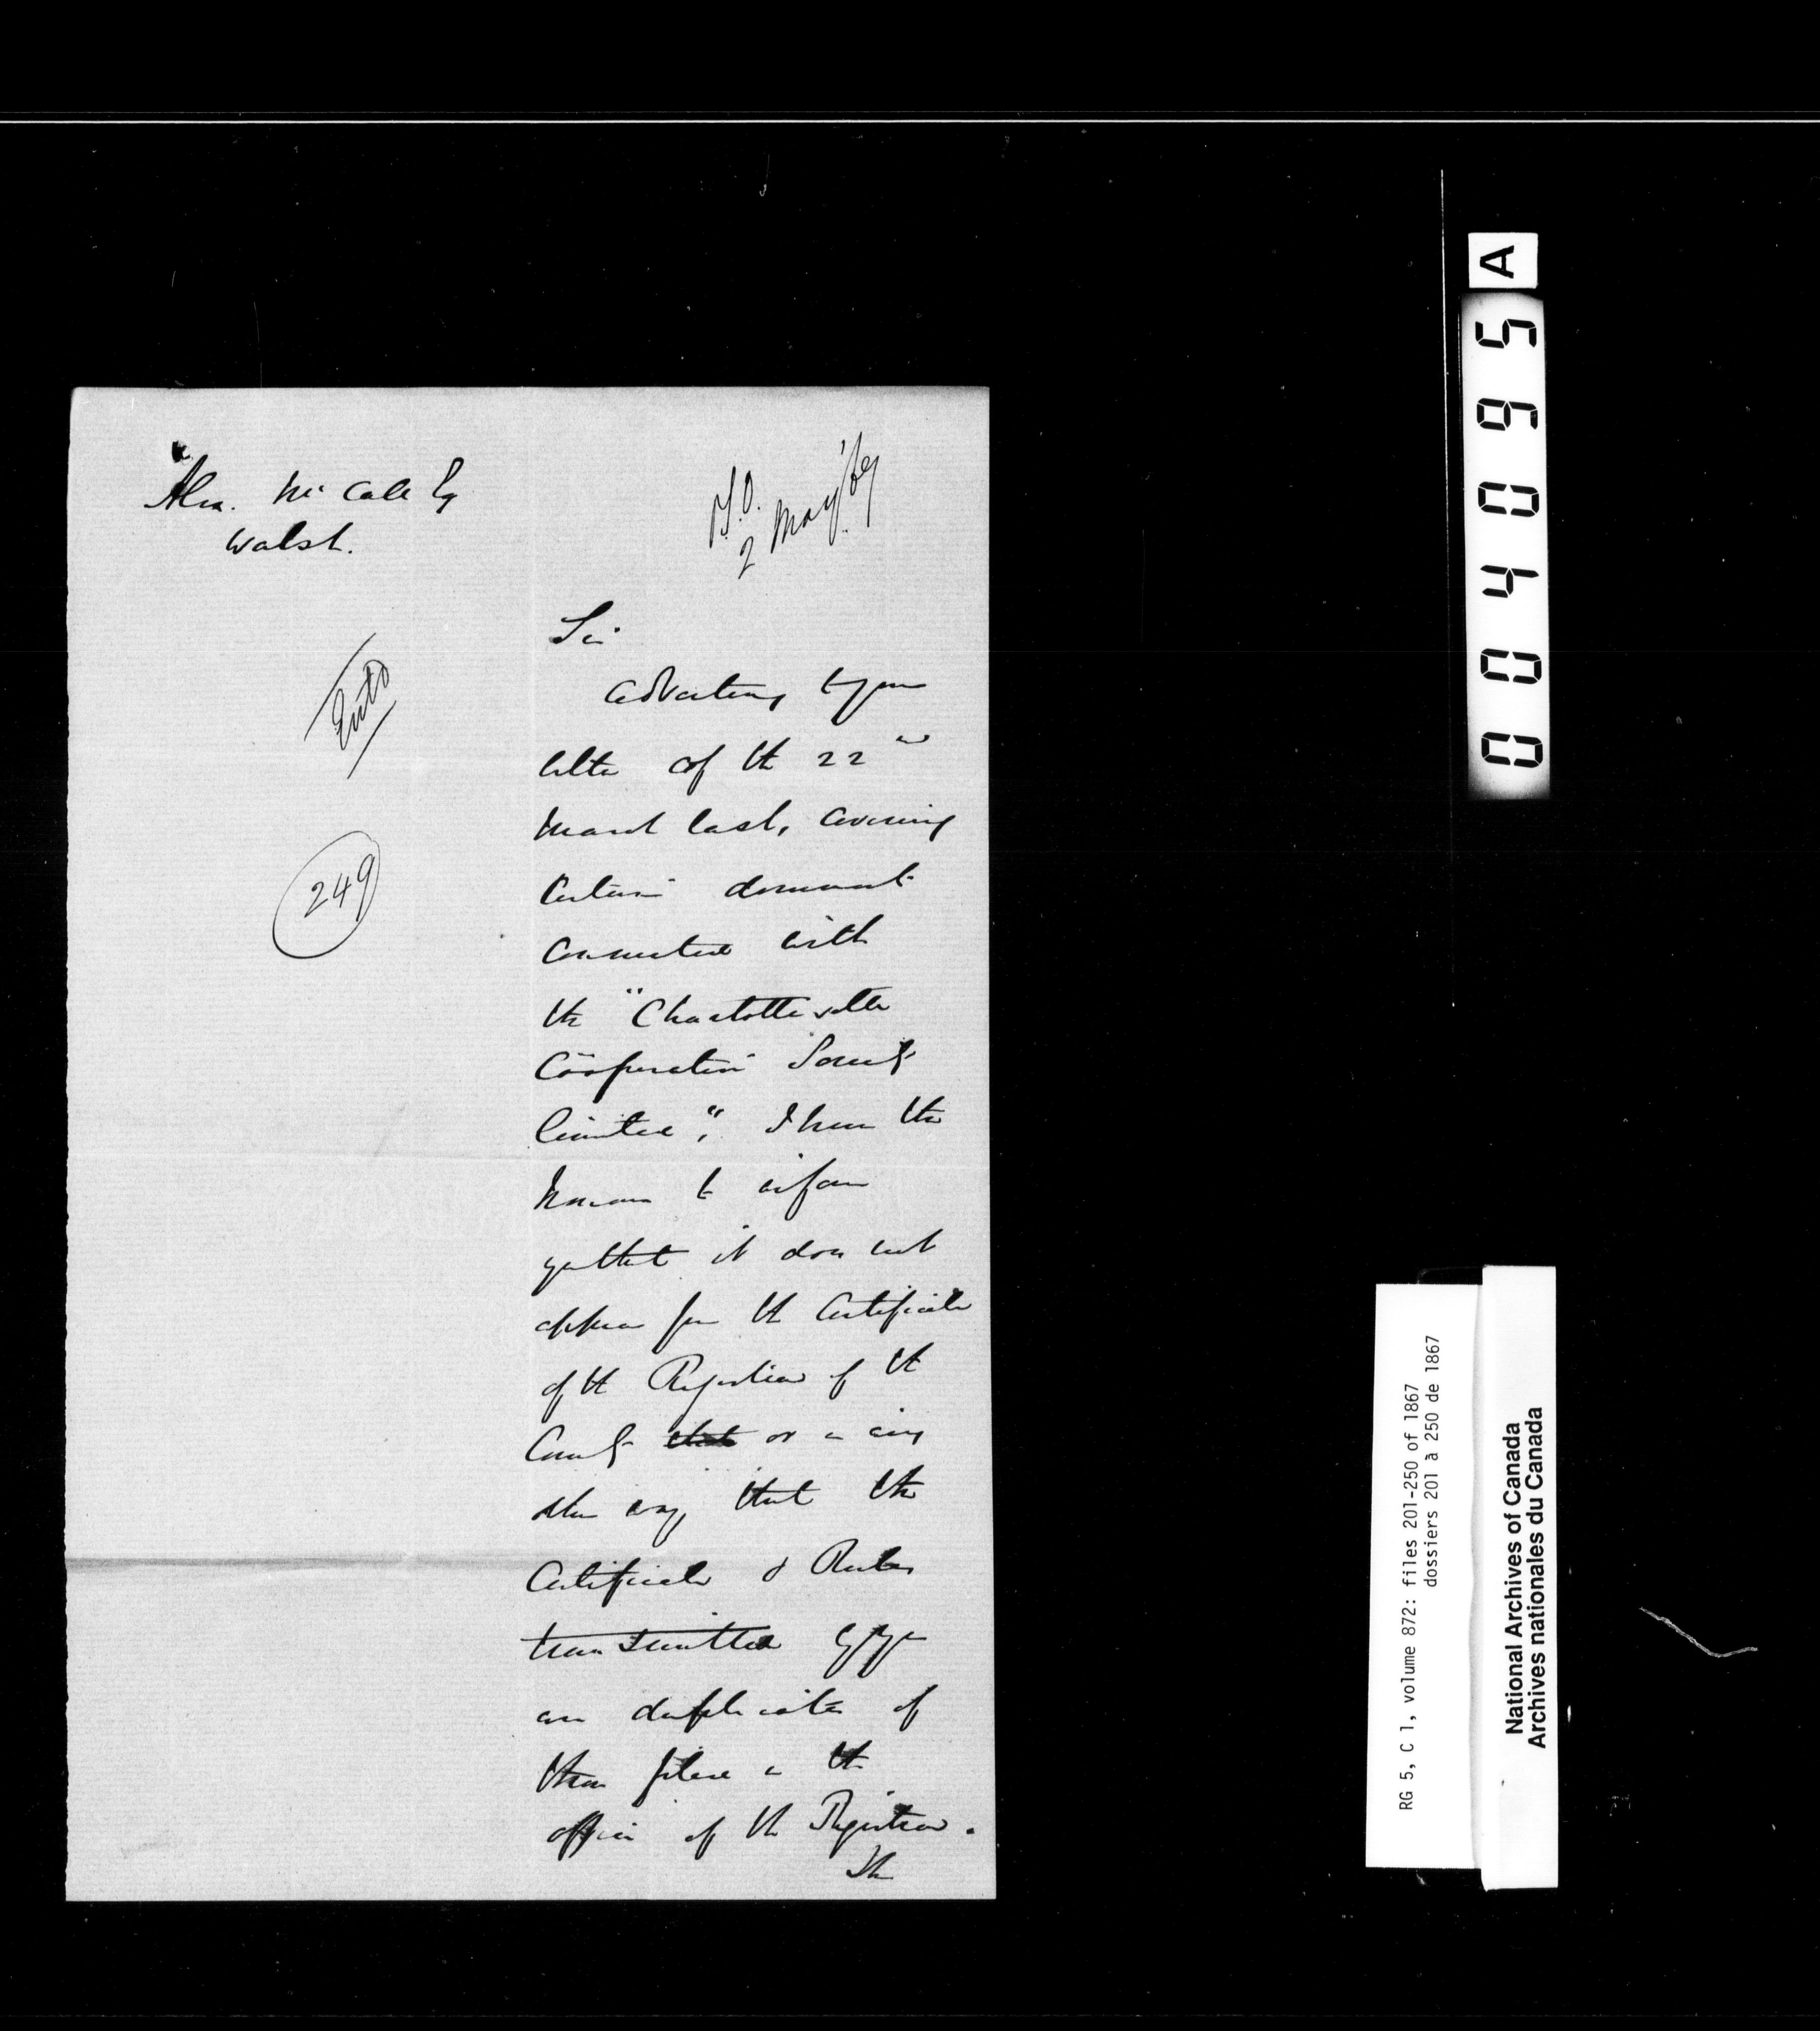 Alex. McCall Esq
Walsh.
P.S.O.
2 May '67
Entd
249
Sir
Adverting to your
letter of the 22nd
March last, covering
certain documents
connected with
the "Charlotteville
Cooperative Society
limited", I have the
honour to inform
you that it does not
appear from the Certificate
of the Registrar of the
County that or in any
other way, that the
Certificate & Rules
transmitted by you
are duplicates of
those filed in the
office of the Registrar.
The
A
004095
RG 5, C 1, volume 872: files 201-250 of 1867
dossiers 201 à 250 de 1867
National Archives of Canada
Archives nationales du Canada